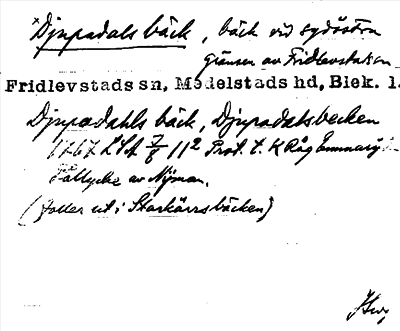 *Djupadals bäck, bäck vid sydöstra
gränsen av Fridlevstad sn
Fridlevstads sn, Medelstads hd, Blek. l.
Djupædahls bäck, Djupadalsbecken
1767 LSA 7/8 11² Prot. t. K
av Nyman.
(faller ut i Starkärrsbäcken)